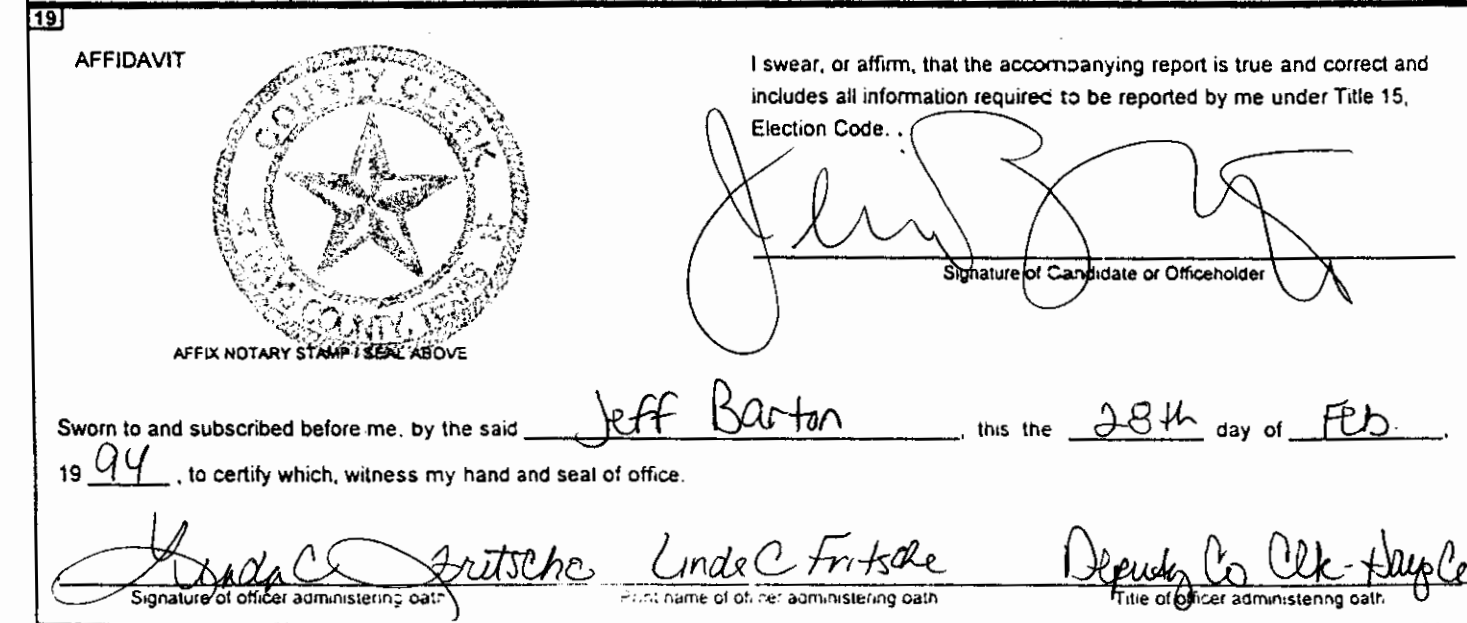 19
AFFIDAVIT
COUNTY CLERK
HAYS COUNTY, TEXAS
AFFIX NOTARY STAMP / SEAL ABOVE
I swear, or affirm, that the accompanying report is true and correct and
includes all information required to be reported by me under Title 15,
Election Code.
Signature of Candidate or Officeholder
Sworn to and subscribed before me, by the said Jeff Barton, this the 28th day of Feb.
19 94, to certify which, witness my hand and seal of office.
Linda C Fritsche Linda C Fritsche Deputy Co Clk-Hays Co
Signature of officer administering oath Print name of officer administering oath Title of officer administering oath